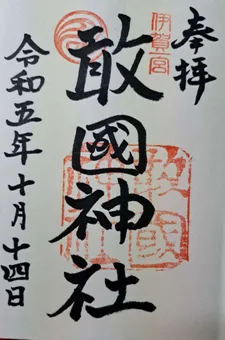 奉拝
伊賀一宮
敢國神社
令和五年十月十四日